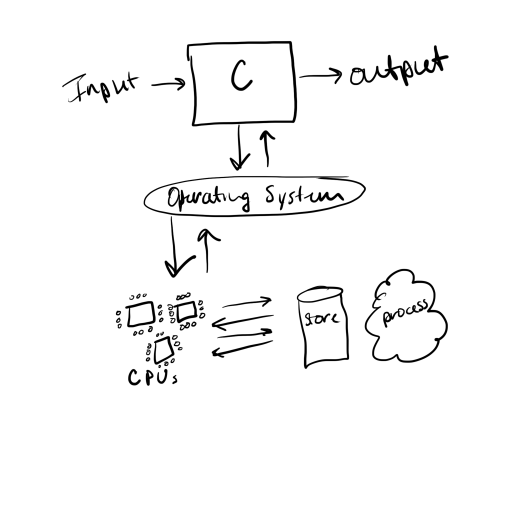 Input
C
output
Operating System
store
process
CPUs